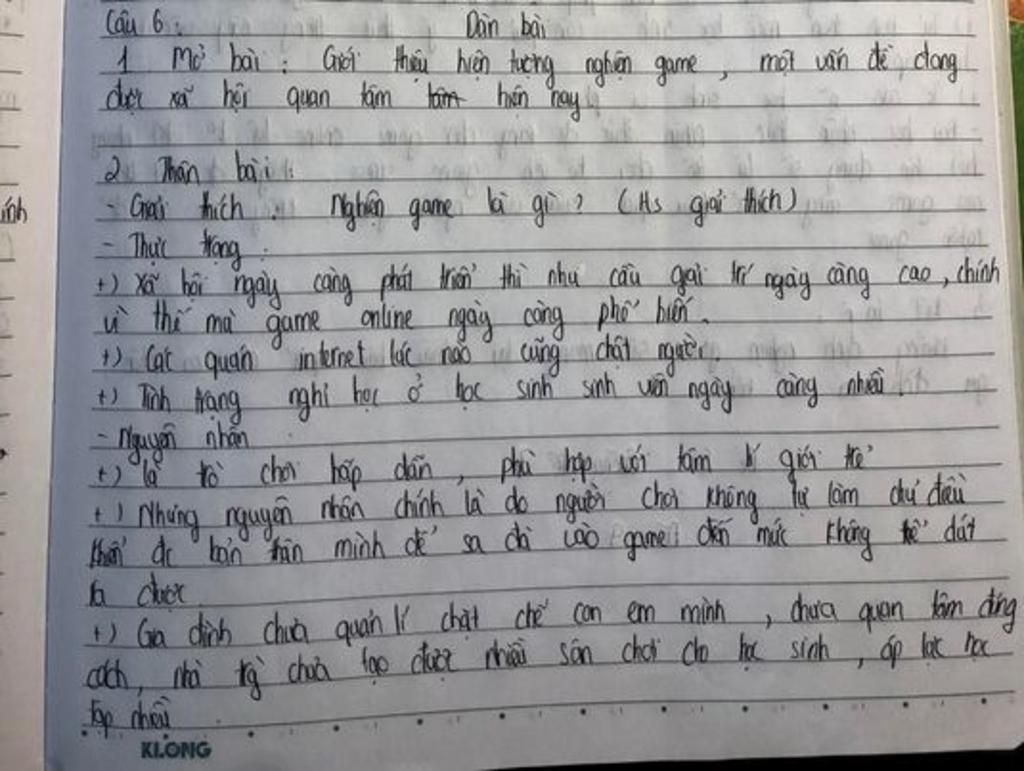 Câu 6: Dàn bài
1 Mở bài: Giới thiệu hiện tượng nghiện game, một vấn đề đang
được xã hội quan tâm tâm hiện nay
2 Thân bài:
- Giải thích: Nghiện game là gì? (Hs giải thích)
- Thực trạng:
+) Xã hội ngày càng phát triển thì nhu cầu giải trí ngày càng cao, chính
vì thế mà game online ngày càng phổ biến.
+) Các quán internet lúc nào cũng chật người.
+) Tình trạng nghỉ học ở học sinh sinh viên ngày càng nhiều
- Nguyên nhân
+) là trò chơi hấp dẫn, phù hợp với tâm lí giới trẻ
+) Nhưng nguyên nhân chính là do người chơi không tự làm chủ điều
khiển đc bản thân mình để sa đà vào game đến mức không thể dứt
ra được
+) Gia đình chưa quản lí chặt chẽ con em mình, chưa quan tâm đúng
cách, nhà trg chưa tạo được nhiều sân chơi cho học sinh, áp lực học
tập nhiều
KLONG
ính